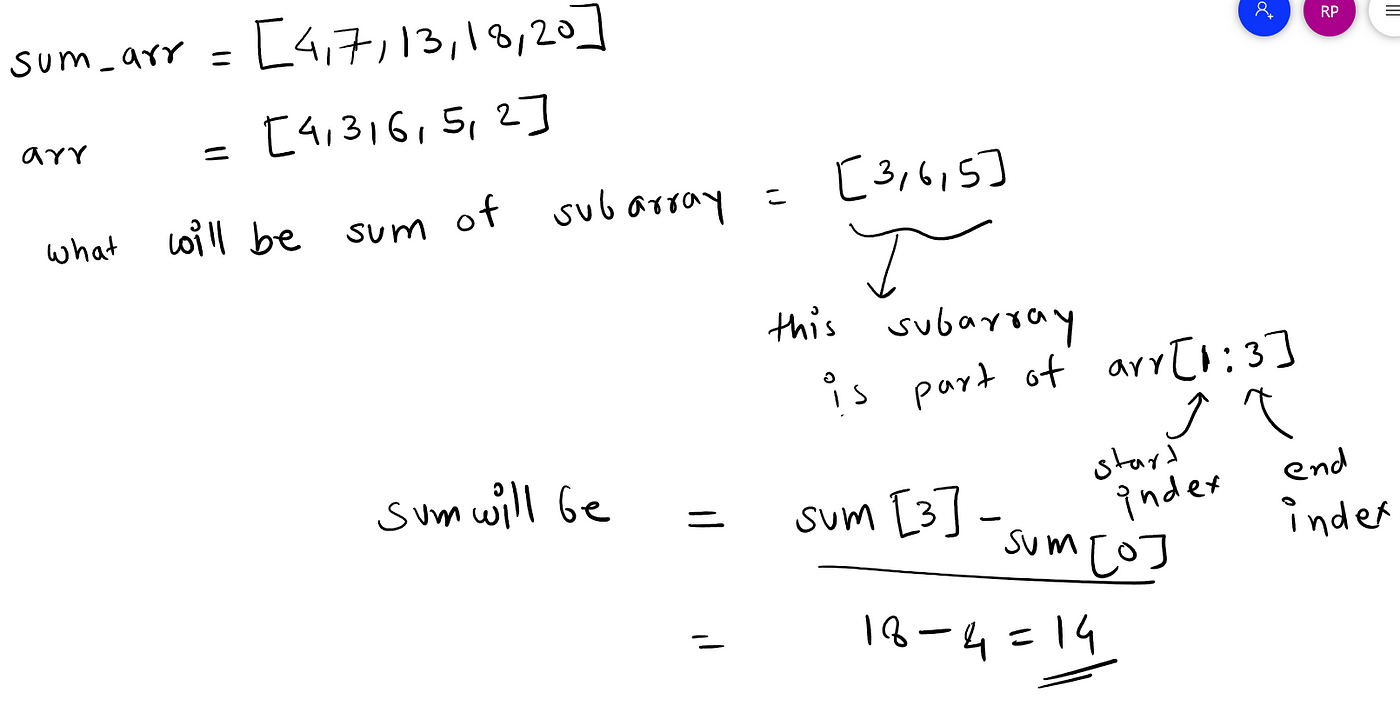 RP
sum_arr = [4,7,13,18,20]
arr = [4,3,6,5,2]
what will be sum of subarray = [3,6,5]
this subarray
is part of arr[1:3]
start index
end index
sum will be = sum[3] - sum[0]
= 18 - 4 = 14